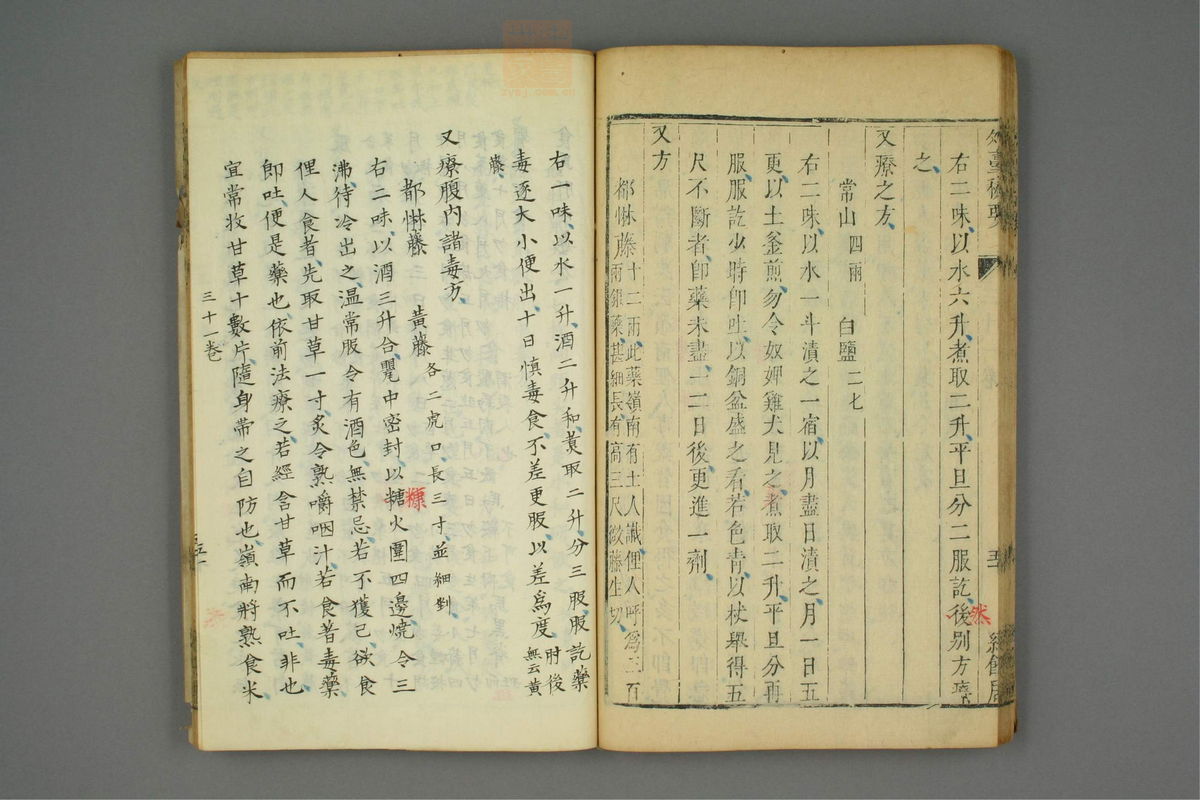 外臺秘要
右二味以水六升煮取二升平旦分二服訖後别方療
然
之
又療之方
常山四兩 白鹽一二七
右二味以水一斗漬之一宿以月盡日漬之月一日五
更以土釜煎勿令奴婢雞犬見之煮取二升平旦分再
服服訖少時即吐以銅盆盛之看若色青以杖舉得五
尺不斷者即藥未盡一二日後更進一劑
又方
都惏藤十二兩此藥嶺南有土人識俚人呼爲三百
兩銀藥甚細長有高三尺微藤生切
右一味以水一升酒二升和煑取二升分三服服訖藥
毒逐大小便出十日慎毒食不差更服以差爲度肘後
無云黄
藤
又療腹内諸毒方
都惏藤 黄藤各二虎口長三寸並細剉
右二味以酒三升合甖中密封以糖火圍四邊燒令三
糠
沸待冷出之温常服令有酒色無禁忌若不獲已欲食
俚人食者先取甘草一寸炙令熟嚼咽汁若食著毒藥
即吐便是藥也依前法療之若經含甘草而不吐非也
宜常收甘草十數片隨身帶之自防也嶺南將熟食米
三十一巻